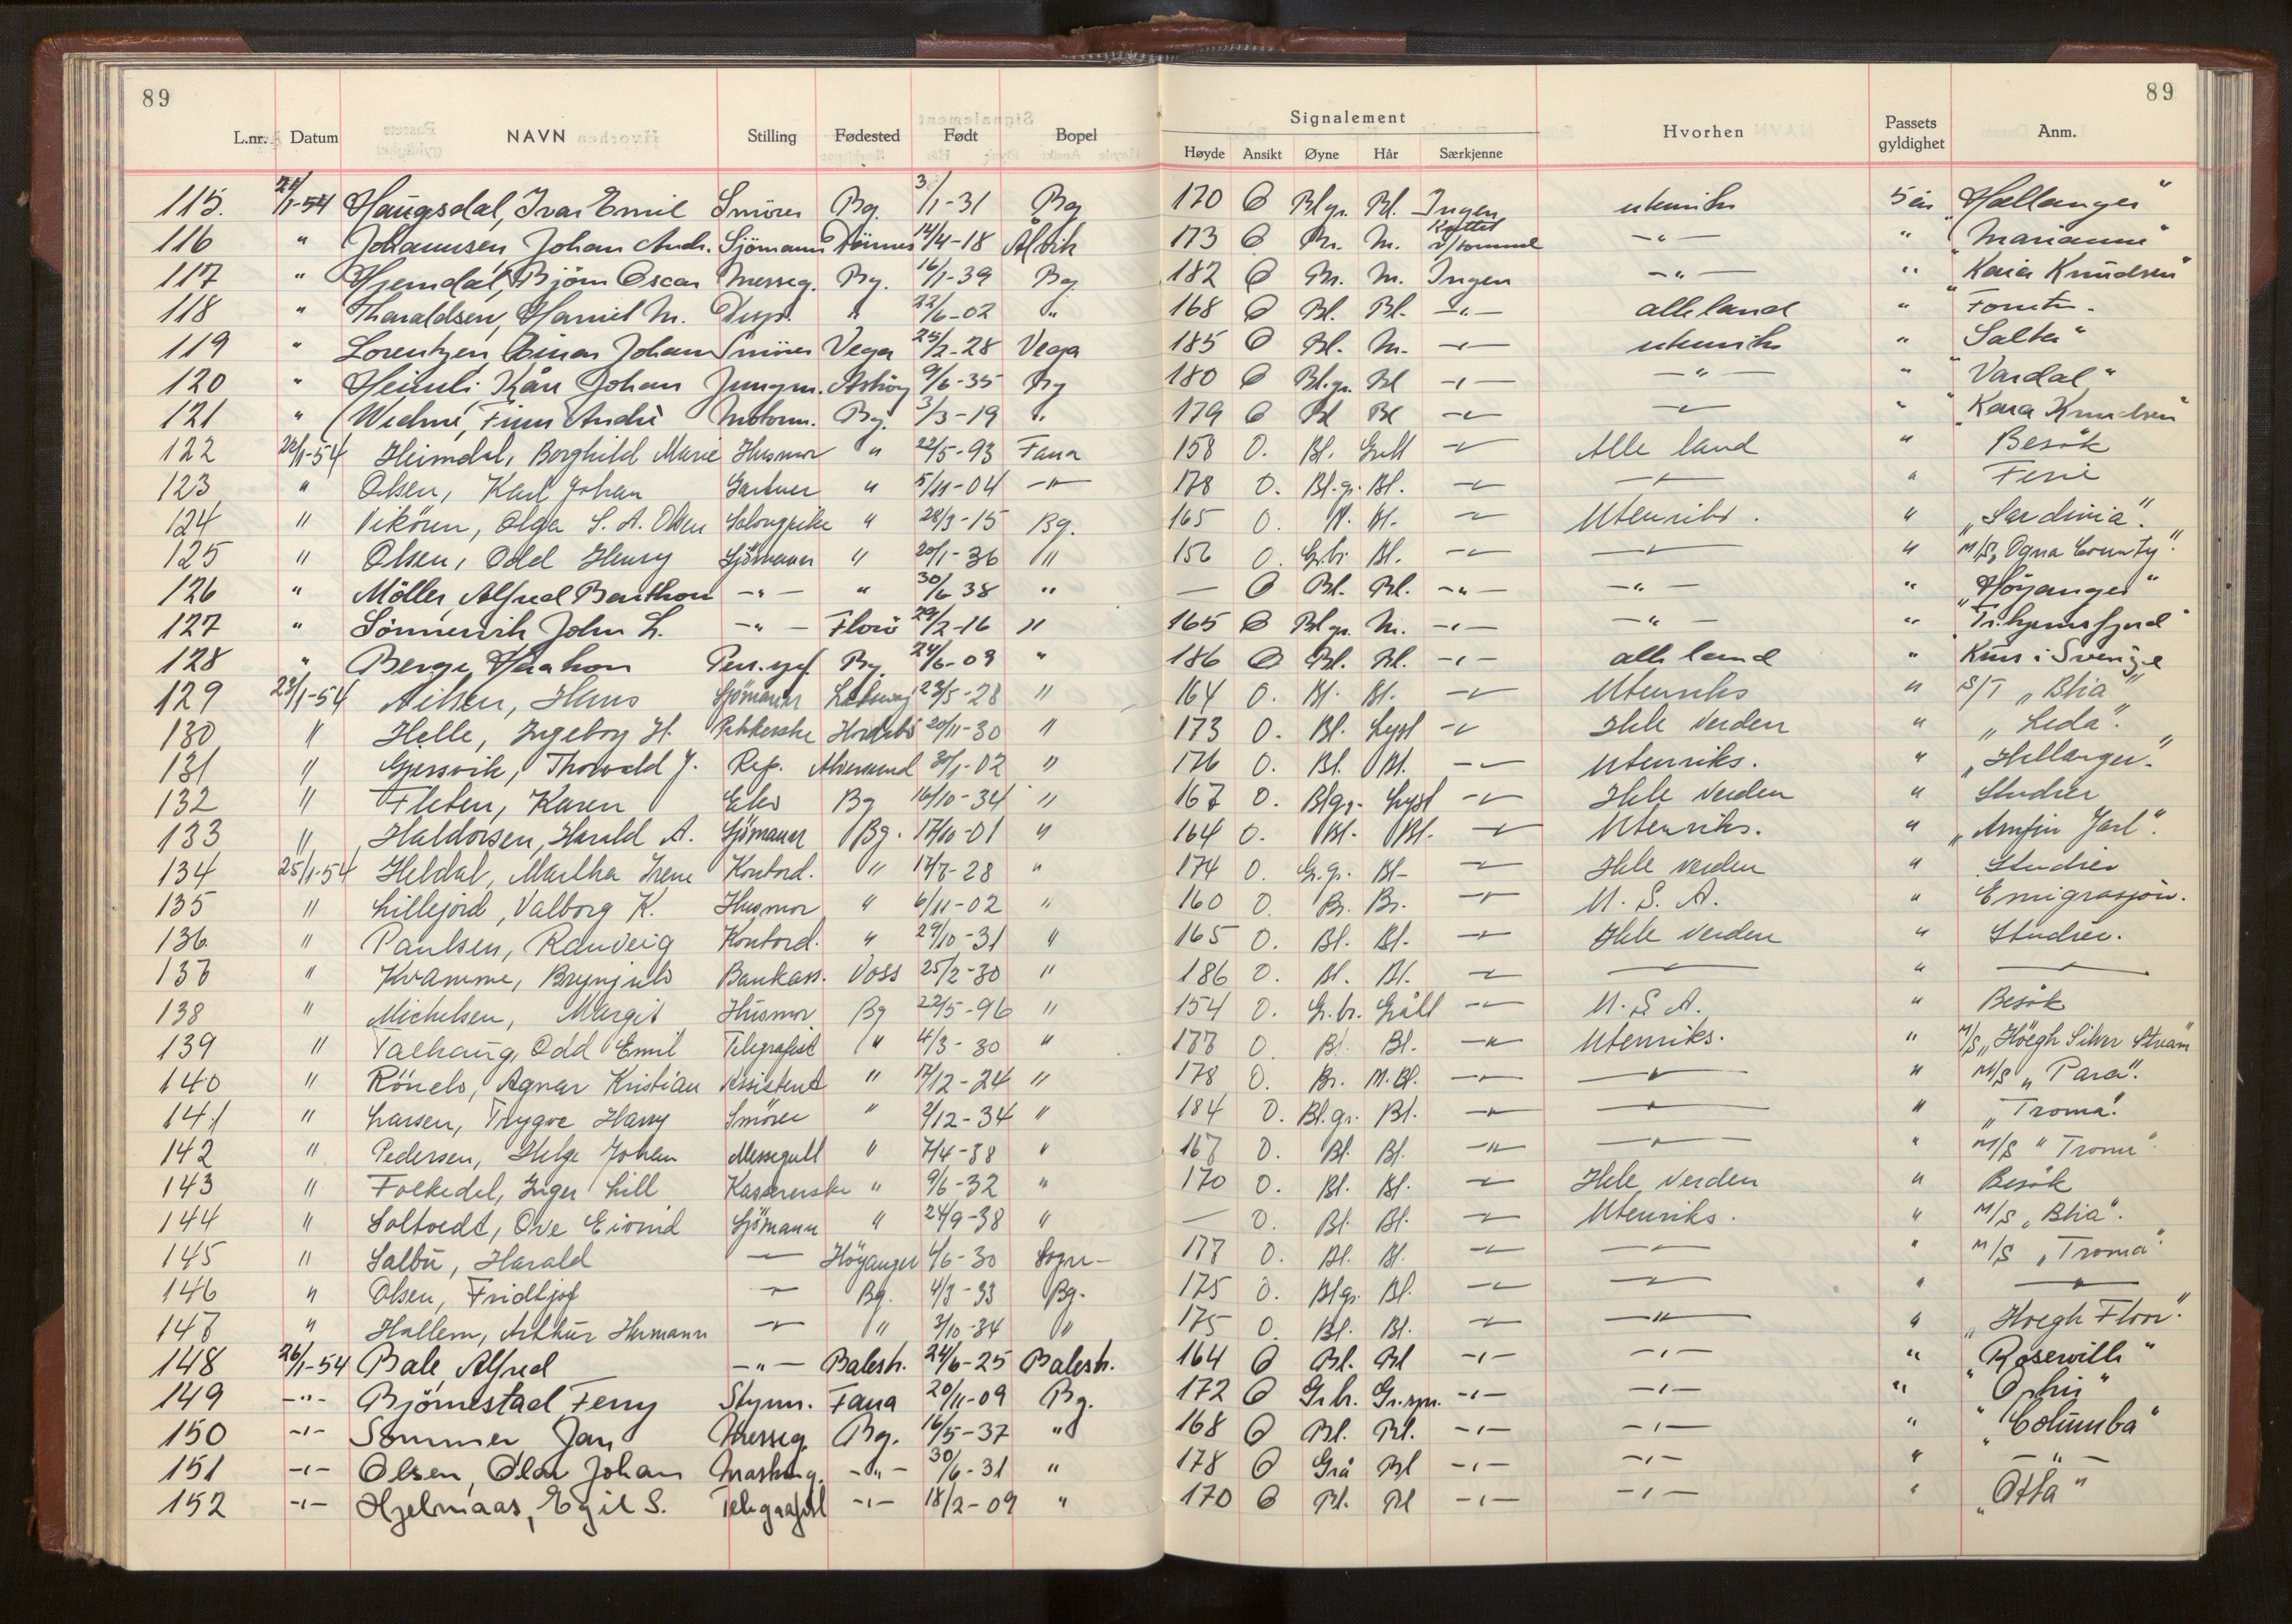 89
89
Signalement
L.nr. Datum NAVN Stilling Fødested Født Bopel Høyde Ansikt Øyne Hår Særkjenne Hvorhen Passets gyldighet Anm.
115. 21/1-54 Haugsdal, Ivar Emil Smörer Bg. 3/1-31 Bg 170 O Blgr. Bl. Ingen utenriks 5 år "Hallanger"
116 " Johannsen, Johan Andr. Sjömann Dönnes 14/4-18 Ålvik 173 O Br. M. Kuttet v/tommel -"- " "Marianne"
117 " Hjemdal, Bjørn Oscar Messeg. Bg. 16/1-39 Bg 182 O Br. M. Ingen -"- " "Kaia Knudsen"
118 " Tharaldsen, M. Disp. " 22/6-02 " 168 O Bl. Bl. -"- alle land "
119 " Lorentzen, Einar Johan Smörer Vega 25/2-28 Vega 185 O Bl. M. -"- utenriks " "Salta"
120 " Heimli Kåre Johan Jungm. Askøy 9/6-35 Bg 180 O Bl.gr. Bl -"- -"- " "Vardal"
121 " Widme, Finn André Motorm. Bg. 3/3-19 " 179 O Bl Bl -"- -"- " "Kaia Knudsen"
122 22/1-54 Heimdal, Borghild Marie Husmor " 22/5-93 Fana 158 O. Bl. Grått -"- Alle land " Besök
123 " Olsen, Karl Johan Gartner " 5/11-04 -"- 178 O. Bl.gr. Bl. -"- -"- " Ferie
124 " Vikören, Olga S. A. Olsen Salongpike " 28/3-15 Bg. 165 O. Bl. Bl. -"- Utenriks. " "Sardinia".
125 " Olsen, Odd Henry Sjömann " 20/1-36 " 156 O. Gr.br. Bl. -"- -"- " M/S "Ogna County".
126 " Möller, Alfred Berthon -"- " 30/6 38 " — O Bl. Bl. -"- -"- " "Höyanger"
127 " Sönnervik John L. -"- Florö 29/2-16 " 165 O Blgr. M. -"- -"- " "Tr.hjemsfjord"
128 " Berge, Haakon Pers.sjef. Bg. 24/6-09 " 186 O Bl. Bl. -"- alle land " Kurs i Sverige
129 23/1-54 Nilsen, Hans Sjömann 23/5-28 " 164 O. Bl. Bl. -"- Utenriks " S/T "Blia"
130 " Helle, Ingeborg H. Pakkerske Hordabö 20/11-30 " 173 O. Bl. Lyst -"- Hele verden " "Leda".
131 " Gjersvik, Thorvald J. Rep. Alversund 30/1-02 " 176 O. Bl. Bl. -"- Utenriks. " "Hallanger".
132 " Fleten, Karen Elev Bg 16/10-34 " 167 O. Blgr. Lyst -"- Hele verden " Studier
133 " Haldorsen, Harald A. Sjömann Bg. 17/10-01 " 164 O. Bl. Bl. -"- Utenriks. " "Arnfin Jarl".
134 25/1-54 Heldal, Martha Irene Kontord. " 17/7-28 " 174 O. Gr.gr. Bl- -"- Hele verden " Studier
135 " Lillejord, Valborg K. Husmor " 6/11-02 " 160 O. Br. Br. -"- U. S. A. " Emigrasjon.
136. " Paulsen, Randveig Kontord. " 29/10-31 " 165 O. Bl. Bl. -"- Hele verden " Studier.
137 " Kvamme, Brynjulv Bankass. Voss 25/2-30 " 186 O. Bl. Bl. -"- -"- " -"-
138 " Michelsen, Margit Husmor Bg 22/5-96 " 154 O. Gr.br. Grått -"- U. S. A. " Besök
139 " Talhaug, Odd Emil Telegrafist " 4/3-30 " 177 O Bl. Bl. -"- Utenriks. " M/S "Höegh Silver Stream"
140 " Rönels, Agnar Kristian Assistent " 17/12-24 " 178 O. Br. M.Bl. -"- -"- " M/S "Para".
141 " Larsen, Trygve Harry Smörer " 2/12-34 " 184 O. Bl.gr. Bl. -"- -"- " "Troma".
142 " Pedersen, Helge Johan Messegutt " 7/4-38 " 167 O. Bl. Bl. -"- -"- " M/S "Troma".
143 " Folkedal, Inger Lill Kassererske " 9/6-32 " 170 O. Bl. Bl. -"- Hele verden " Besök
144 " Soltvedt, Ove Eivind Sjömann " 24/9-38 " — O. Bl. Bl. -"- Utenriks. " M/S "Blia".
145 " Salbu, Harald -"- Höyanger 4/6-30 Sogn- 177 O. Bl. Bl. -"- -"- " M/S "Troma".
146 " Olsen, Fridtjof -"- Bg. 4/3-33 Bg. 175 O. Blgr. Bl. -"- -"- " -"-
147 " Hallem, Arthur Hermann -"- " 3/10-34 " 175 O. Bl. Bl. -"- -"- " "Hoegh Flor".
148 26/1-54 Bale, Alfred -"- Balestr. 24/6-25 Balestr. 164 O Bl. Bl -"- -"- " "Rosewille"
149 -"- Björnestad Ferry Styrm. Fana 20/11-09 Bg. 172 O Gr.br. Gr.spr. -"- -"- " "Ophir"
150 -"- Sommer, Jan Messeg. Bg. 16/5-37 " 168 O Bl. Bl. -"- -"- " "Columba"
151 -"- Olsen, Olav Johan Masking. -"- 30/6-31 " 178 O Grå Bl -"- -"- " -"-
152 -"- Hjelmaas, Egil S. Telegrafist -"- 18/2-09 " 170 O Bl. Bl -"- -"- " "Otta"